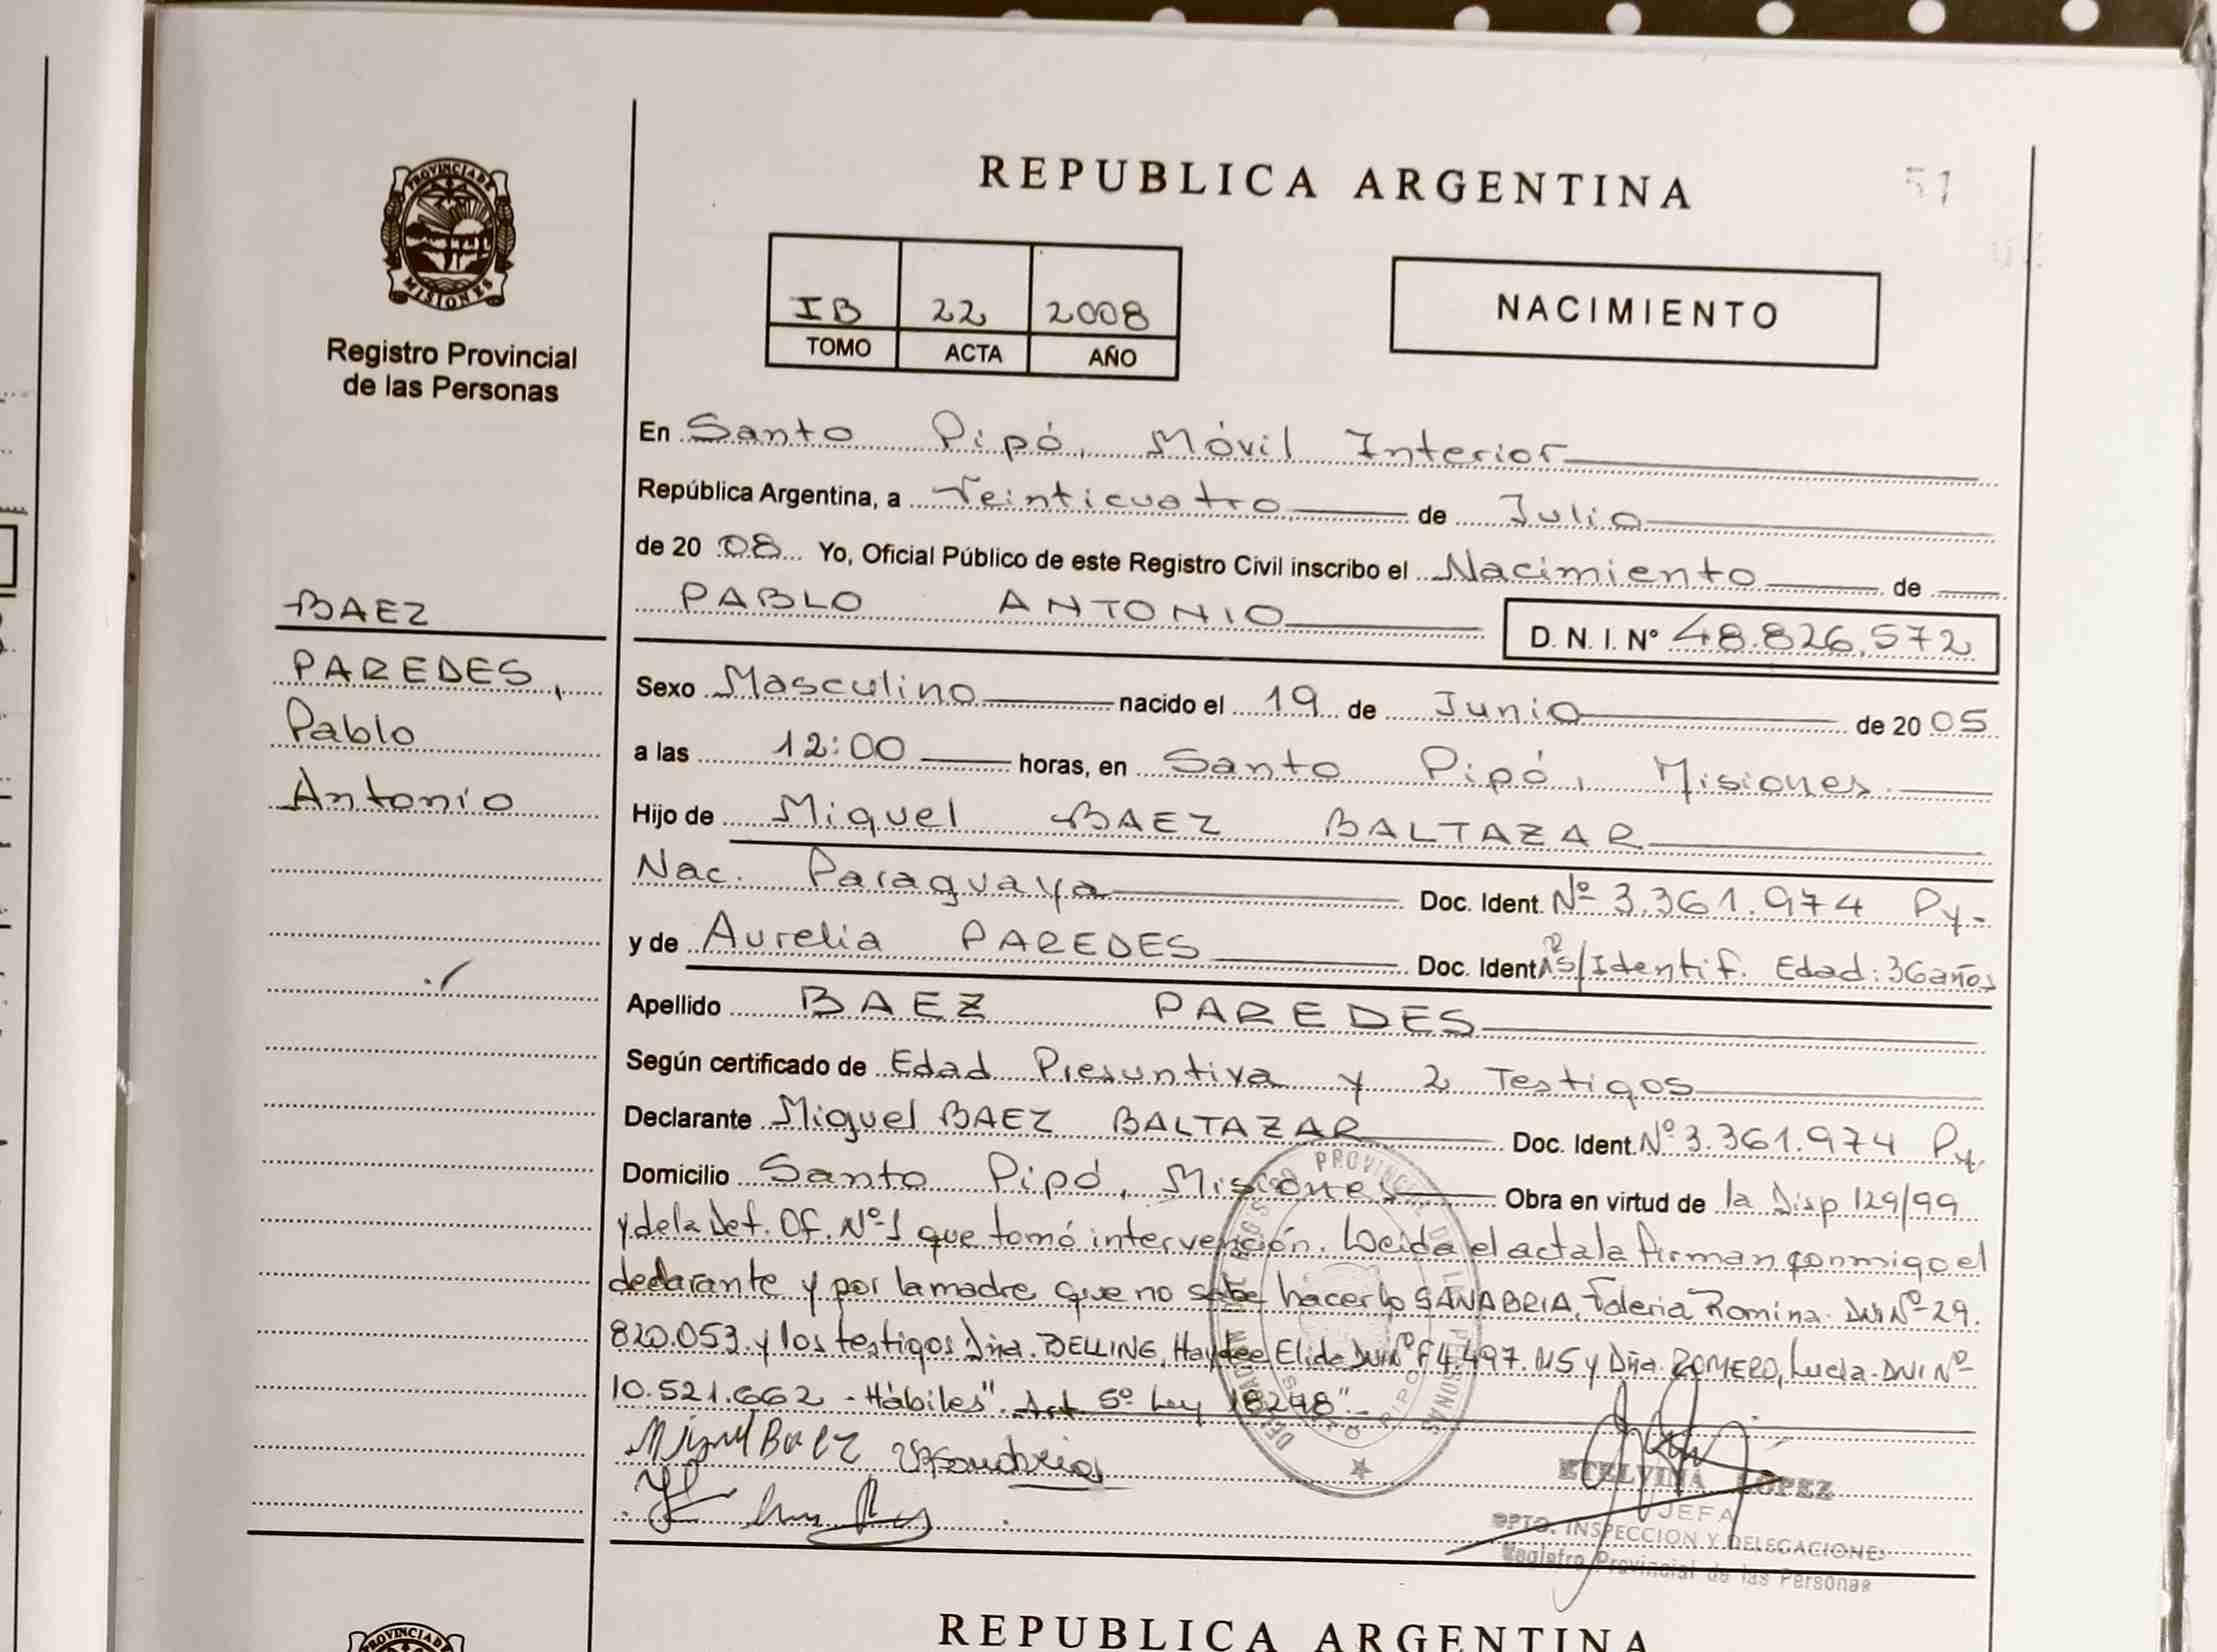 REPUBLICA ARGENTINA
51
PROVINCIA DE
MISIONES
Registro Provincial
de las Personas
IB 22 2008
TOMO ACTA AÑO
NACIMIENTO
En Santo Pipó, Móvil Interior
República Argentina, a Veinticuatro de Julio
de 20 08 Yo, Oficial Público de este Registro Civil inscribo el Nacimiento de
BAEZ
PAREDES,
Pablo
Antonio
PABLO ANTONIO D. N. I. N° 48.826.572
Sexo Masculino nacido el 19 de Junio de 20 05
a las 12:00 horas, en Santo Pipó, Misiones.
Hijo de Miguel BAEZ BALTAZAR
Nac. Paraguaya Doc. Ident. Nº 3.361.974 Py-
y de Aurelia PAREDES Doc. Ident S/Identif. Edad: 36 años
Apellido BAEZ PAREDES
Según certificado de Edad Presuntiva y 2 Testigos
Declarante Miguel BAEZ BALTAZAR Doc. Ident. Nº 3.361.974 Py.
Domicilio Santo Pipó, Misiones Obra en virtud de la Disp 129/99
y de la Def. Of. Nº 1 que tomó intervención. Leída el acta la firman conmigo el
declarante y por la madre que no sabe hacerlo SANABRIA, Valeria Romina. DNI Nº 29.
820.053. y los testigos Dña. BELLING, Haydee Elida DNI Nº F4.497.115 y Dña. ROMERO, Lucía. DNI Nº
10.521.662 - Hábiles". Art. 5º Ley 18248".-
Miguel Baez
ETELVINA LOPEZ
JEFA
DPTO. INSPECCION Y DELEGACIONES
Registro Provincial de las Personas
PROVINCIA DE
REPUBLICA ARGENTINA